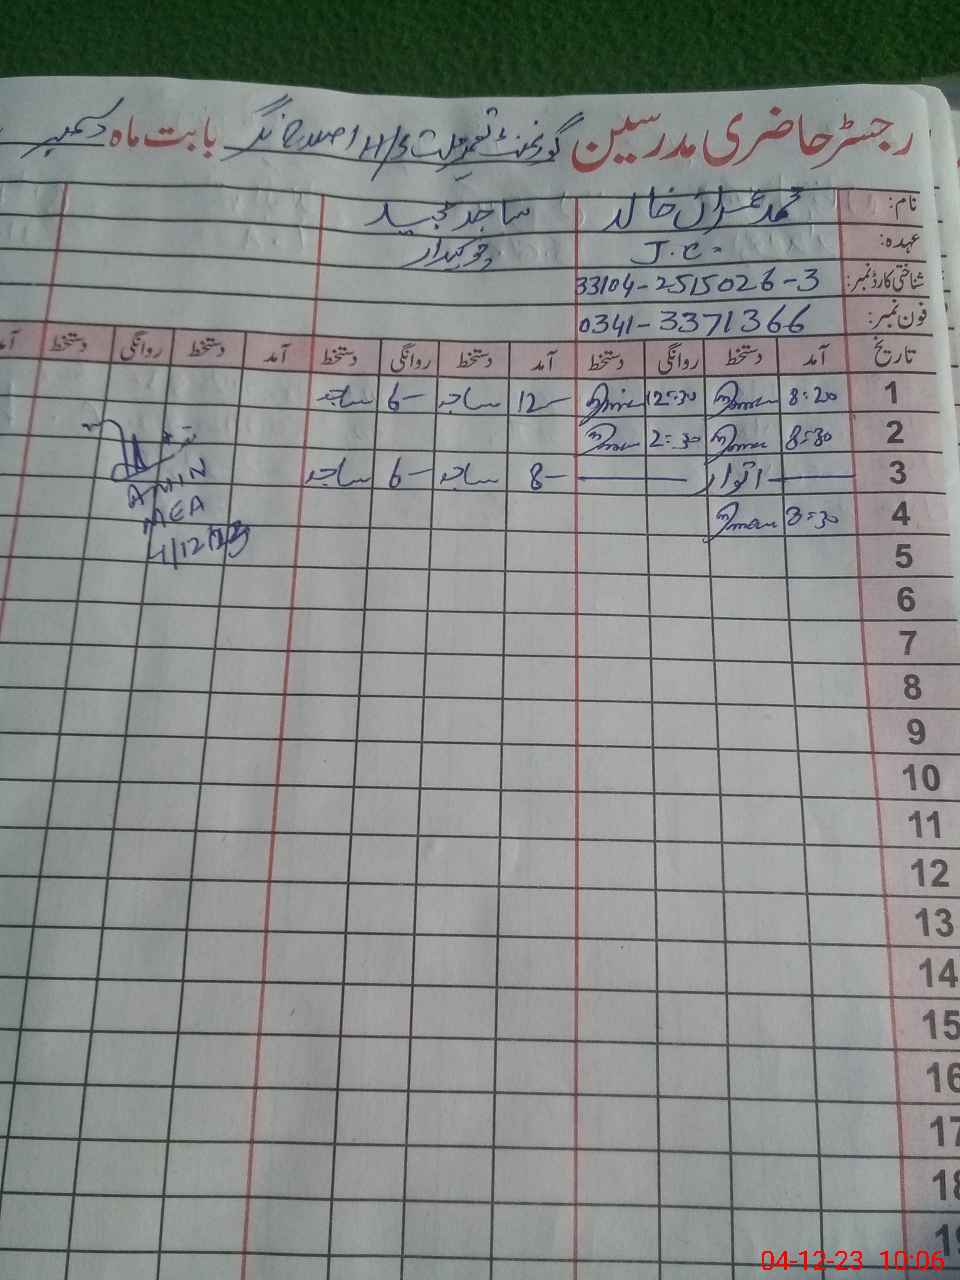 رجسٹر حاضری مدرسین گورنمنٹ H/S احمد نگر بابت ماہ دسمبر
نام: محمد عمران خالد ساجد مجید
عہدہ: J.C. چوکیدار
شناختی کارڈ نمبر: 33104-2515026-3
فون نمبر: 0341-3371366
تاریخ آمد دستخط روانگی دستخط آمد دستخط روانگی دستخط آمد دستخط روانگی دستخط
1 8:20 Imran 12:30 Imran 12 ساجد 6 ساجد
2 8:30 Imran 2:30 Imran
3 اتوار 8 ساجد 6 ساجد
4 8:30 Imran
AMIN
MEA
4/12/23
5
6
7
8
9
10
11
12
13
14
15
16
17
18
19
04-12-23 10:06